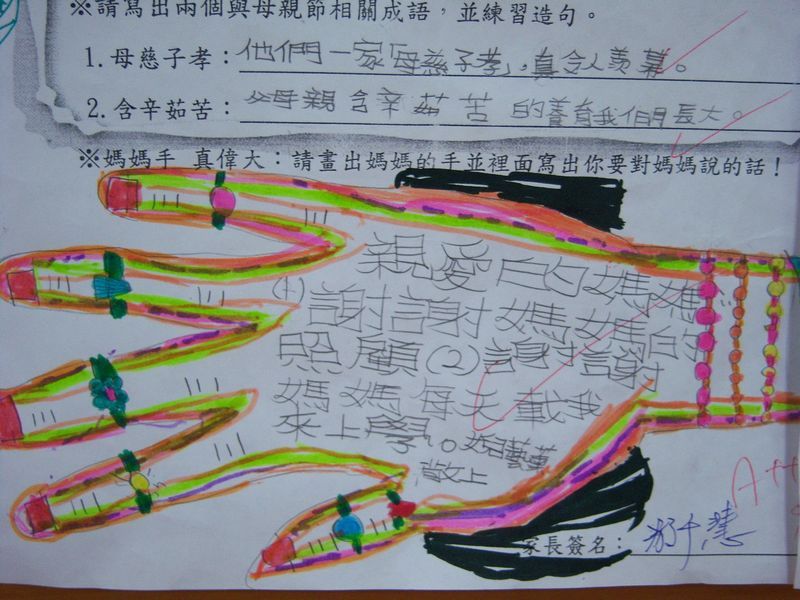 ※請寫出兩個與母親節相關成語，並練習造句。
1.母慈子孝：他們一家「母慈子孝」，真令人羨慕。
2.含辛茹苦：父母親含辛茹苦的養育我們長大。
※媽媽手 真偉大：請畫出媽媽的手並裡面寫出你要對媽媽說的話！
親愛的媽媽
(1)謝謝媽媽的
照顧(2)謝謝
媽媽每天載我
來上學。
敬上
家長簽名：
A++